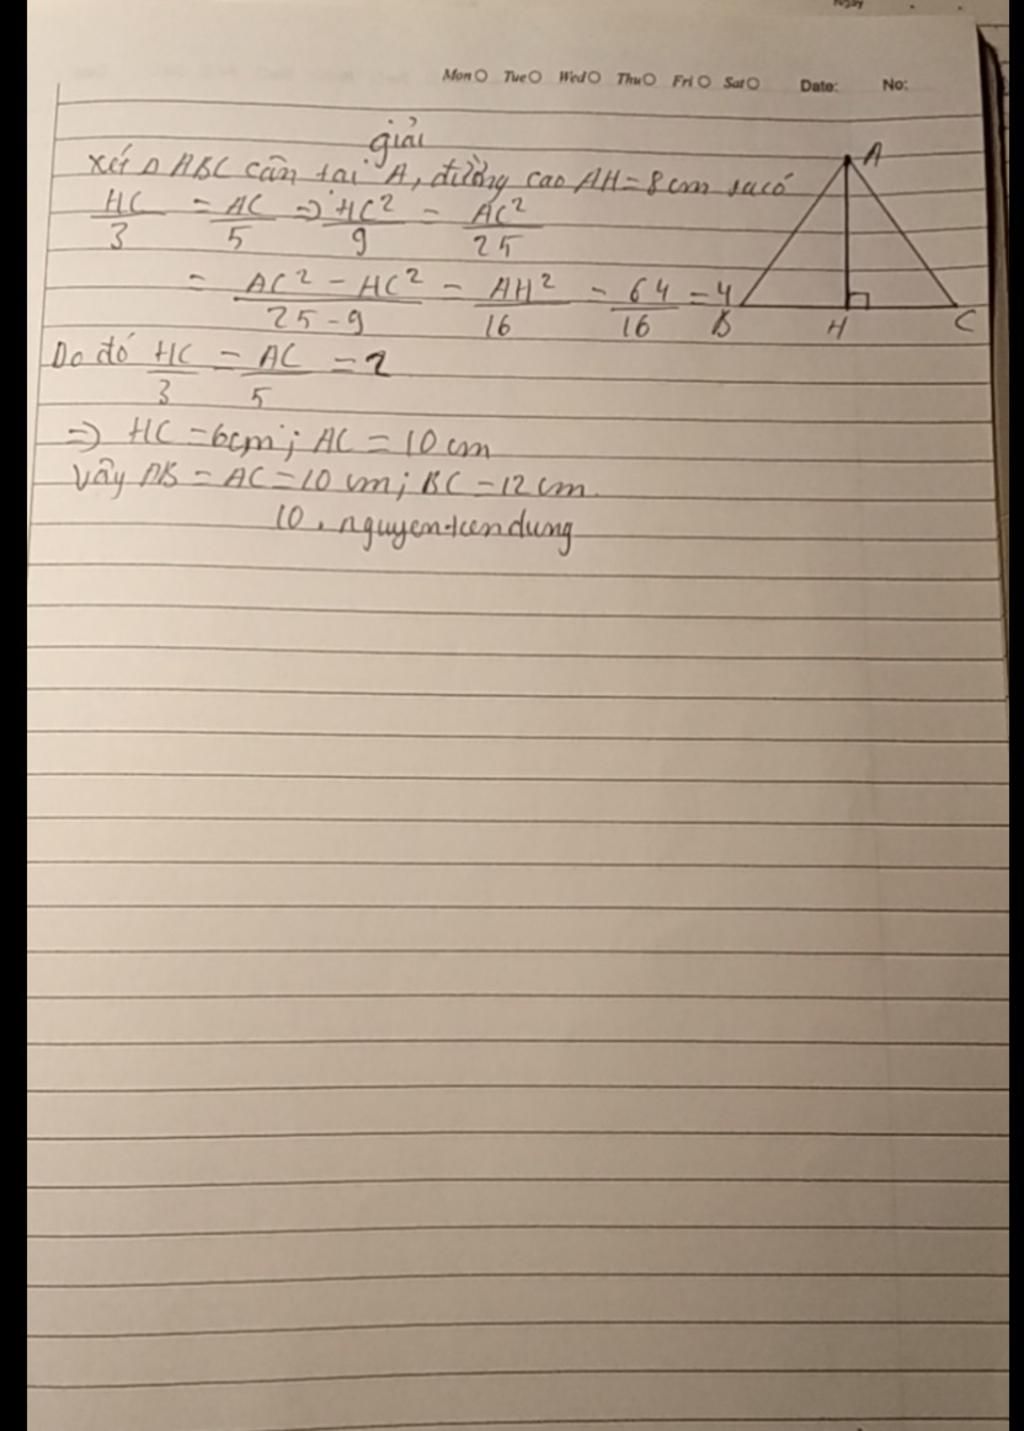 Mon Tue Wed Thu Fri Sat Date: No:
giải
xét Δ ABC cân tại A, đường cao AH = 8 cm ta có
HC/3 = AC/5 ⇒ HC²/9 = AC²/25
= AC² - HC²/25 - 9 = AH²/16 = 64/16 = 4
A
B H C
Do đó HC/3 = AC/5 = 2
⇒ HC = 6cm ; AC = 10 cm
vây AB = AC = 10 cm ; BC = 12 cm.